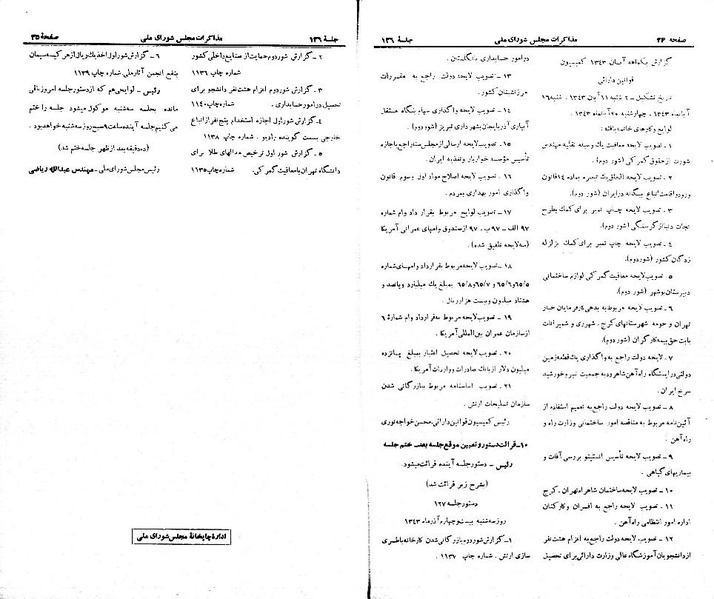 صفحهٔ ۲۴ مذاکرات مجلس شورای ملی جلسهٔ ۱۳۶
گزارش یکماهه آبان ۱۳۴۳ کمیسیون
قوانین دارائی
لوایح و کارهای خاتمه یافته:
۱ ـ تصویب لایحه معافیت یک وسیله نقلیه مهندس
شورت از حقوق گمرکی (شور دوم).
۲ ـ تصویب لایحه الحاق یک تبصره بماده ۱۴ قانون
ورود و اقامت اتباع بیگانه در ایران (شور دوم).
۳ ـ تصویب لایحه چاپ تمبر برای کمک بطرح
نجات دنیا از گرسنگی (شور دوم).
۴ ـ تصویب لایحه چاپ تمبر برای کمک بزلزله
زدگان کشور (شور دوم).
۵ ـ تصویب لایحه معافیت گمرکی لوازم ساختمانی
دبیرستان بوشهر (شور دوم).
۶ ـ تصویب لایحه مربوط به بدهی کارفرمایان خباز
تهران و حومه شهرستانهای کرج، شهرری و شمیرانات
بابت حق بیمه کارگران (شور دوم).
۷ ـ لایحه دولت راجع به واگذاری یک قطعه زمین
دولتی در ایستگاه راه آهن شاهرود به جمعیت شیر و خورشید
سرخ ایران.
۸ ـ تصویب لایحه دولت راجع به تعمیم استفاده از
آئین نامه مربوط به مناقصه امور ساختمانی وزارت راه و
راه آهن.
۹ ـ تصویب لایحه تأسیس انستیتو بررسی آفات و
بیماریهای گیاهی.
۱۰ ـ تصویب لایحه ساختمان شاهراه تهران ـ کرج
۱۱ ـ تصویب لایحه راجع به افسران و کارکنان
اداره امور انتظامی راه آهن.
۱۲ ـ تصویب لایحه دولت راجع به اعزام هشت نفر
از دانشجویان آموزشگاه عالی وزارت دارائی برای تحصیل
در امور حسابداری بانگلستان.
۱۳ ـ تصویب لایحه دولت راجع به مقررات
مرزنشینان کشور.
۱۴ ـ تصویب لایحه واگذاری سهام بنگاه مستقل
آبیاری آذربایجان بشهرداری تبریز (شور دوم).
۱۵ ـ تصویب لایحه ارسالی از مجلس سنا راجع باجازه
تأسیس مؤسسه خواربار و تغذیه ایران.
۱۶ ـ تصویب لایحه اصلاح مواد اول و سوم قانون
واگذاری امور بهداری بمردم.
۱۷ ـ تصویب لوایح مربوط بقرارداد وام شماره
۹۷ الف ـ ۹۷ ب ـ ۹۷ از صندوق وامهای عمرانی آمریکا
(سه لایحه تلفیق شده).
۱۸ ـ تصویب لایحه مربوط بقرارداد وامهای شماره
۶۵/۵ و ۶۵/۶ و ۶۵/۷ و ۶۵/۸ بمبلغ یک میلیارد و پانصد و
هشتاد میلیون و بیست هزار ریال.
۱۹ ـ تصویب لایحه مربوط بقرارداد وام شمارهٔ ۶
از سازمان عمران بین المللی آمریکا.
۲۰ ـ تصویب لایحه تحصیل اعتبار بمبلغ پانزده
میلیون دلار از بانک صادرات و واردات آمریکا.
۲۱ ـ تصویب اساسنامه مربوط ببازرگانی شدن
سازمان تسلیحات ارتش.
رئیس کمیسیون قوانین دارائی. محسن خواجه نوری
۱۰ ـ قرائت دستور و تعیین موقع جلسه بعد ـ ختم جلسه
رئیس ـ دستور جلسه آینده قرائت میشود.
(بشرح زیر قرائت شد)
دستور جلسه ۱۳۷
روز سه شنبه بیست و چهار آذرماه ۱۳۴۳
۱ ـ گزارش شور دوم بازرگانی شدن کارخانه باطری
سازی ارتش. شماره چاپ ۱۱۳۷.
جلسهٔ ۱۳۶ مذاکرات مجلس شورای ملی صفحهٔ ۲۵
۲ ـ گزارش شور دوم حمایت از صنایع داخلی کشور
شماره چاپ ۱۱۳۶
۳ ـ گزارش شور دوم اعزام هشت نفر دانشجو برای
تحصیل در امور حسابداری. شماره چاپ ۱۱۴۰
۴ ـ گزارش شور اول اجازه استخدام پنج نفر از اتباع
خارجی بسمت گوینده رادیو. شماره چاپ ۱۱۳۸
۵ ـ گزارش شور اول ترخیص مدالهای طلا برای
دانشگاه تهران با معافیت گمرکی. شماره چاپ ۱۱۳۵
۶ ـ گزارش شور اول اخذ یک ریال از هر کیسه سیمان
بنفع انجمن آثار ملی. شماره چاپ ۱۱۳۹
رئیس ـ لوایحی هم که از دستور جلسه امروز باقی
مانده بجلسه سه شنبه موکول میشود جلسه را ختم
می کنیم جلسه آینده ساعت ۹ صبح روز سه شنبه خواهد بود.
(ده دقیقه بعد از ظهر جلسه ختم شد)
رئیس مجلس شورای ملی ـ مهندس عبدالله ریاضی
ادارهٔ چاپخانهٔ مجلس شورای ملی